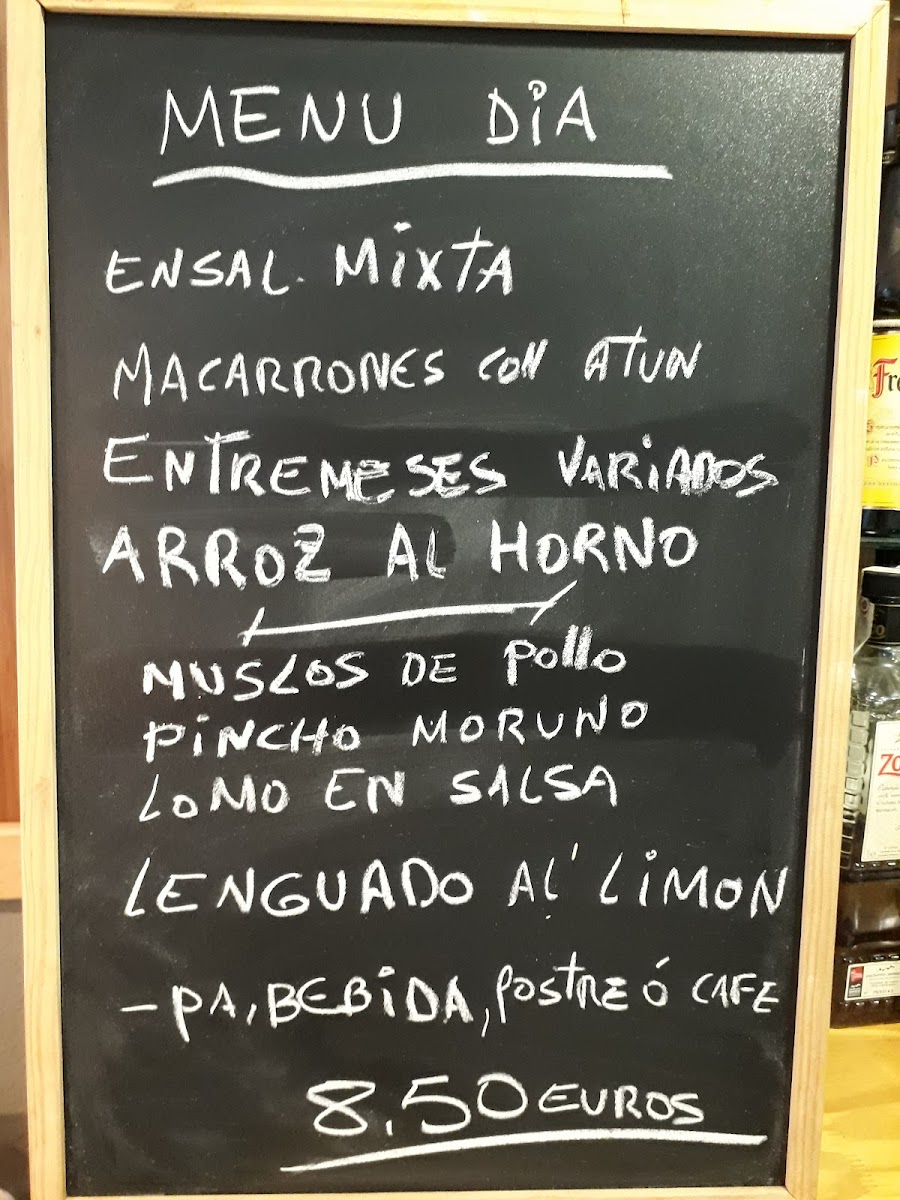 MENU DIA
ENSAL. MIXTA
MACARRONES CON ATUN
ENTREMESES VARIADOS
ARROZ AL HORNO
MUSLOS DE POLLO
PINCHO MORUNO
LOMO EN SALSA
LENGUADO AL LIMON
- PA, BEBIDA, POSTRE Ó CAFE
8.50 EUROS
Fr
Zo